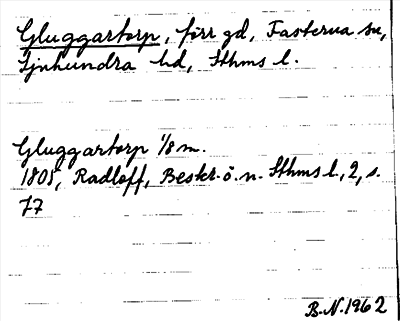 Gluggartorp, förr gd, Fasterna sn,
Sjuhundra hd, Sthms l.
Gluggartorp 1/8 m.
1805, Radloff, Beskr. ö. n. Sthms l., 2, s.
77
B.N. 1962